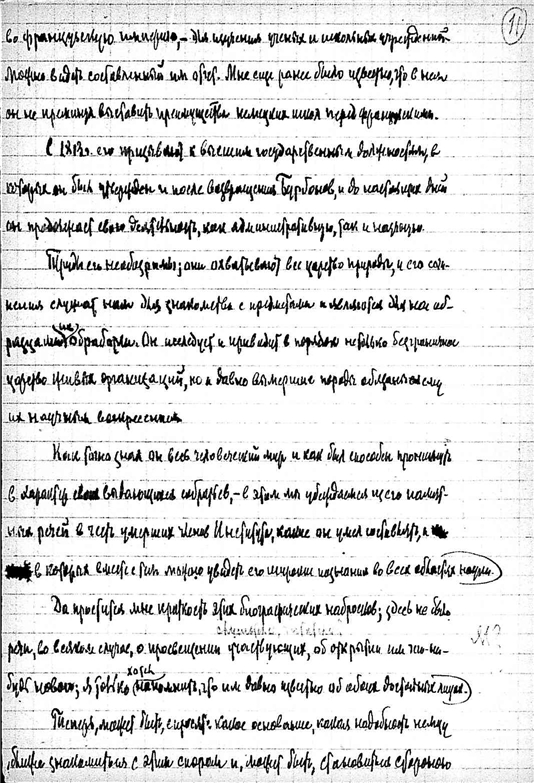 11
во французскую империю, – для изучения ученых и школьных учреждений
можно видеть составленный им отчет. Мне еще ранее было известно, что в нем
он не преминул выставить преимущества немецких школ перед французскими.
С 1813г. его призывают к высшим государственным должностям, в
которых он был утвержден и после возвращения Бурбонов, и до настоящих дней
он продолжает свою деятельность, как административную, так и научную.
Труды его необозримы; они охватывают все царство природы, и его сочи-
нения служат нам для знакомства с предметами и являются для нас об-
разцами их обработки. Он исследует и приводит в порядок не только безграничное
царство живых организаций, но и давно вымершие породы обязаны ему
их научным воскресением
Как точно знал он весь человеческий мир и как был способен проникнуть
в характер выдающихся собратьев, – в этом мы убеждаемся из его памят-
ных речей в честь умерших членов Института, какие он умел составлять, и
в которых вместе с тем можно увидеть его широкие познания во всех областях науки.
Да простится мне краткость этих биографических набросков; здесь не было
речи, во всяком случае, о просвещении участвующих, об открытии им что-ни-
будь нового; я только хотел напомнить, что им давно известно об обоих достойных лицах.
Теперь, может быть, спросят: какое основание, какая надобность немцу
ближе знакомиться с этим спором и, может быть, становиться стороною